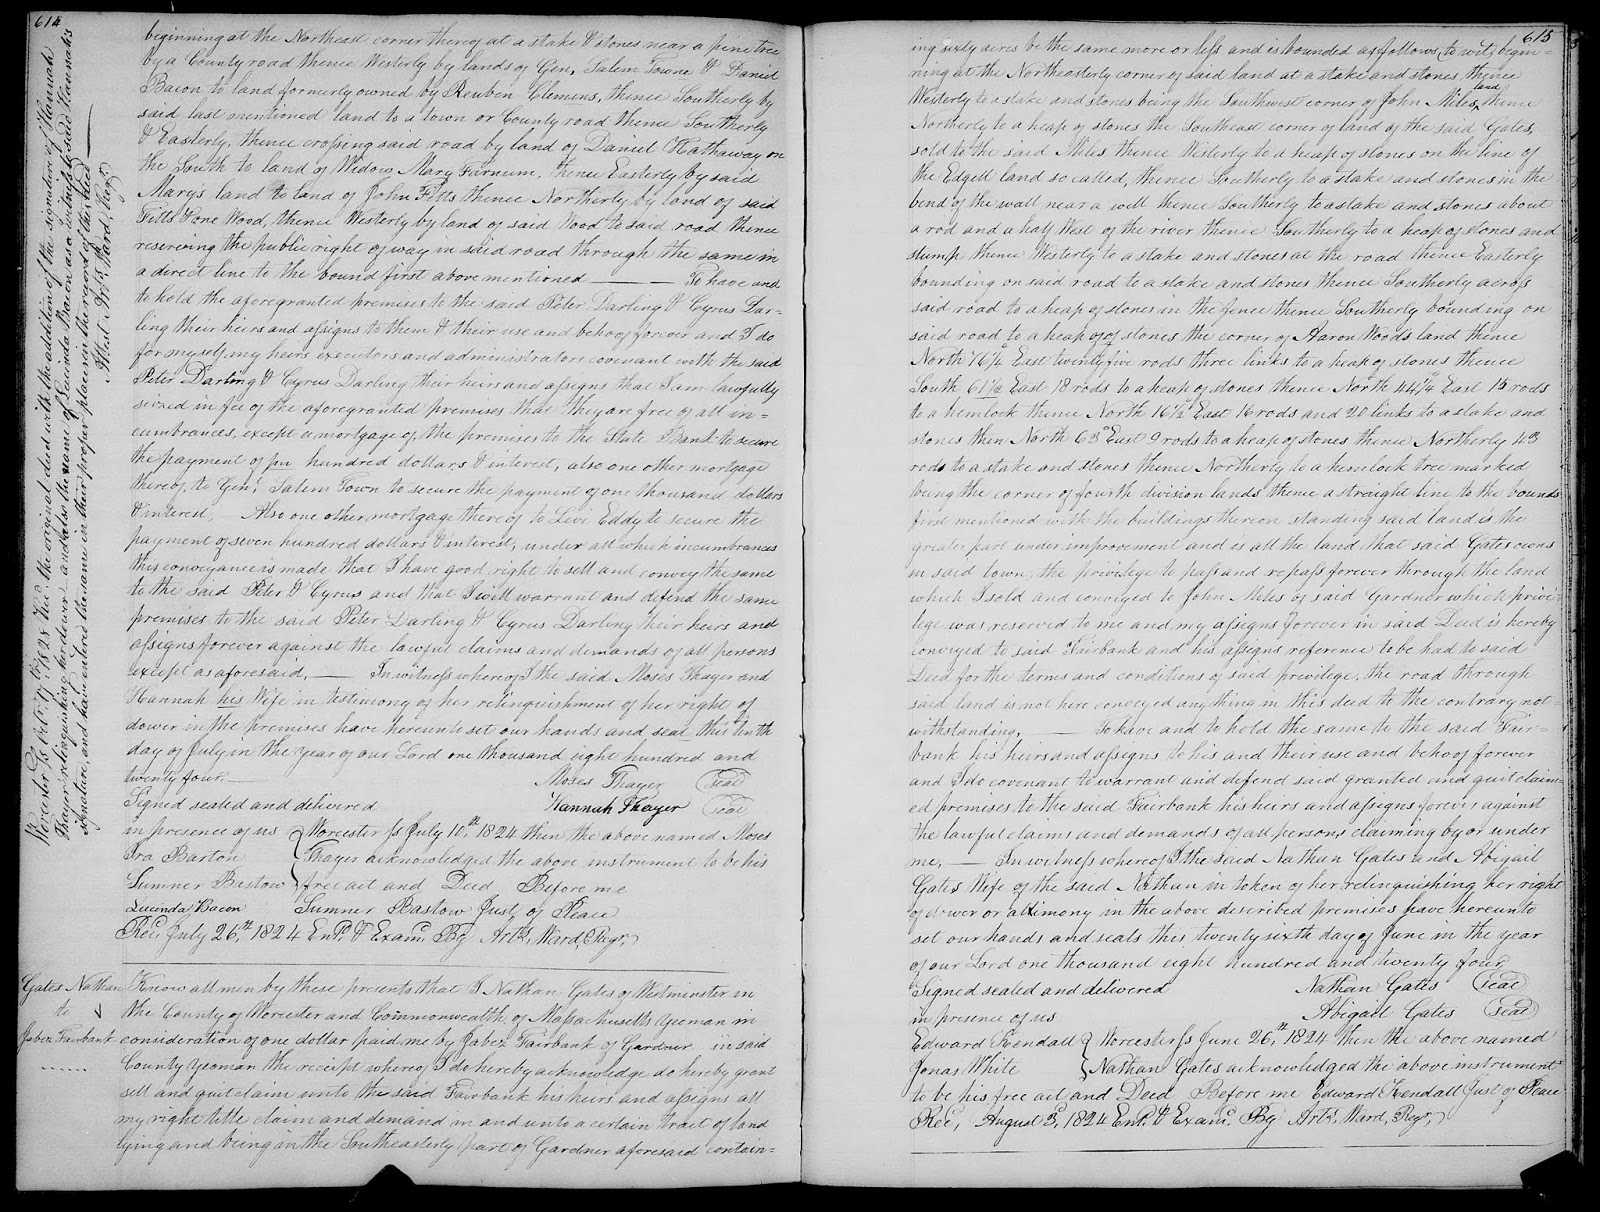 614
beginning at the Northeast corner thereof at a stake & stones near a pine tree
by a County road thence Westerly by lands of Gen. Salem Towne & Daniel
Bacon to land formerly owned by Reuben Clemens, thence Southerly by
said last mentioned land to a town or County road thence Southerly
& Easterly, thence crossing said road by land of Daniel Hathaway on
the South to land of Widow Mary Farnum, thence Easterly by said
Mary's land to land of John Fitts thence Northerly by land of said
Fitts & one Wood, thence Westerly by land of said Wood to said road thence
reserving the public right of way in said road through the same in
a direct line to the bound first above mentioned — To have and
to hold the aforegranted premises to the said Peter Darling & Cyrus Dar-
ling their heirs and assigns to them & their use and behoof forever and I do
for myself my heirs executors and administrators covenant with the said
Peter Darling & Cyrus Darling their heirs and assigns that I am lawfully
seized in fee of the aforegranted premises that they are free of all in-
cumbrances, except a mortgage of the premises to the State Bank to secure
the payment of hundred dollars & interest, also one other mortgage
thereof to Genl. Salem Town to secure the payment of one thousand dollars
& interest, Also one other mortgage thereof to Levi Eddy to secure the
payment of seven hundred dollars & interest, under all which incumbrances
this conveyance is made that I have good right to sell and convey the same
to the said Peter & Cyrus and that I will warrant and defend the same
premises to the said Peter Darling & Cyrus Darling their heirs and
assigns forever against the lawful claims and demands of all persons
except as aforesaid, — In witness whereof I the said Moses Thayer and
Hannah his Wife in testimony of her relinquishment of her right of
dower in the premises have hereunto set our hands and seals this tenth
day of July in the year of our Lord one thousand eight hundred and
twenty four.— Moses Thayer (seal)
Signed sealed and delivered Hannah Thayer (seal)
in presence of us Worcester ss July 10th, 1824 then the above named Moses
Ira Barton Thayer acknowledged the above instrument to be his
Sumner Bastow free act and Deed Before me
Lucinda Bacon Sumner Bastow Just, of Peace
Recd. July 26th, 1824 Entd. & Examd. By Arts. Ward, Regr.
Worcester Ss Oct. 1828 Recd. the original deed with the addition of the signature of Hannah
Thayer relinquishing her dower and also the name of Lucinda Bacon as a witness to said Hannah's
signature, and have entered the same in their proper places in the record of this deed —
Attest Arts. Ward, Regr.
Gates Nathan
to
Jabez Fairbank
Know all men by these presents that I Nathan Gates of Westminster in
the County of Worcester and Commonwealth of Massachusetts yeoman in
consideration of one dollar paid me by Jabez Fairbank of Gardner in said
County yeoman the receipt whereof I do hereby acknowledge do hereby grant
sell and quitclaim unto the said Fairbank his heirs and assigns all
my right title claim and demand in and unto a certain tract of land
lying and being in the Southeasterly part of Gardner aforesaid contain-
615
ing sixty acres be the same more or less and is bounded as follows, to wit, begin-
ning at the Northeasterly corner of said land at a stake and stones, thence
Westerly to a stake and stones being the Southwest corner of John Miles, land thence
Northerly to a heap of stones the Southeast corner of land of the said Gates,
sold to the said Miles thence Westerly to a heap of stones on the line of
the Edgell land so called, thence Southerly to a stake and stones in the
bend of the wall near a well thence Southerly to a stake and stones about
a rod and a half West of the river thence Southerly to a heap of stones and
stump thence Westerly to a stake and stones at the road thence Easterly
bounding on said road to a stake and stones thence Southerly across
said road to a heap of stones in the fence thence Southerly bounding on
said road to a heap of stones the corner of Aaron Woods land thence
North 76¼° East twenty five rods three links to a heap of stones thence
South 61½ East 18 rods to a heap of stones thence North 44¼° East 15 rods
to a hemlock thence North 16½° East 16 rods and 20 links to a stake and
stones then North 63° East 9 rods to a heap of stones thence Northerly 43
rods to a stake and stones thence Northerly to a hemlock tree marked
being the corner of fourth division lands thence a straight line to the bounds
first mentioned with the buildings thereon standing said land is the
greater part under improvement and is all the land that said Gates owns
in said town, the privilege to pass and repass forever through the land
which I sold and conveyed to John Miles of said Gardner which privi-
lege was reserved to me and my assigns forever in said Deed is hereby
conveyed to said Fairbank and his assigns reference to be had to said
Deed for the terms and conditions of said privilege, the road through
said land is not here conveyed any thing in this deed to the contrary not-
withstanding, — To have and to hold the same to the said Fair-
bank his heirs and assigns to his and their use and behoof forever
and I do covenant to warrant and defend said granted and quitclaim-
ed premises to the said Fairbank his heirs and assigns forever against
the lawful claims and demands of all persons claiming by or under
me, — In witness whereof I the said Nathan Gates and Abigail
Gates Wife of the said Nathan in token of her relinquishing her right
of dower or alimony in the above described premises have hereunto
set our hands and seals this twenty sixth day of June in the year
of our Lord one thousand eight hundred and twenty four,
Signed sealed and delivered Nathan Gates (seal)
in presence of us Abigail Gates (seal)
Edward Kendall Worcester ss June 26th, 1824 then the above named
Jonas White Nathan Gates acknowledged the above instrument
to be his free act and Deed Before me Edward Kendall Just of Peace
Recd. August 3d, 1824 Entd. & Examd. By Arts. Ward, Regr.